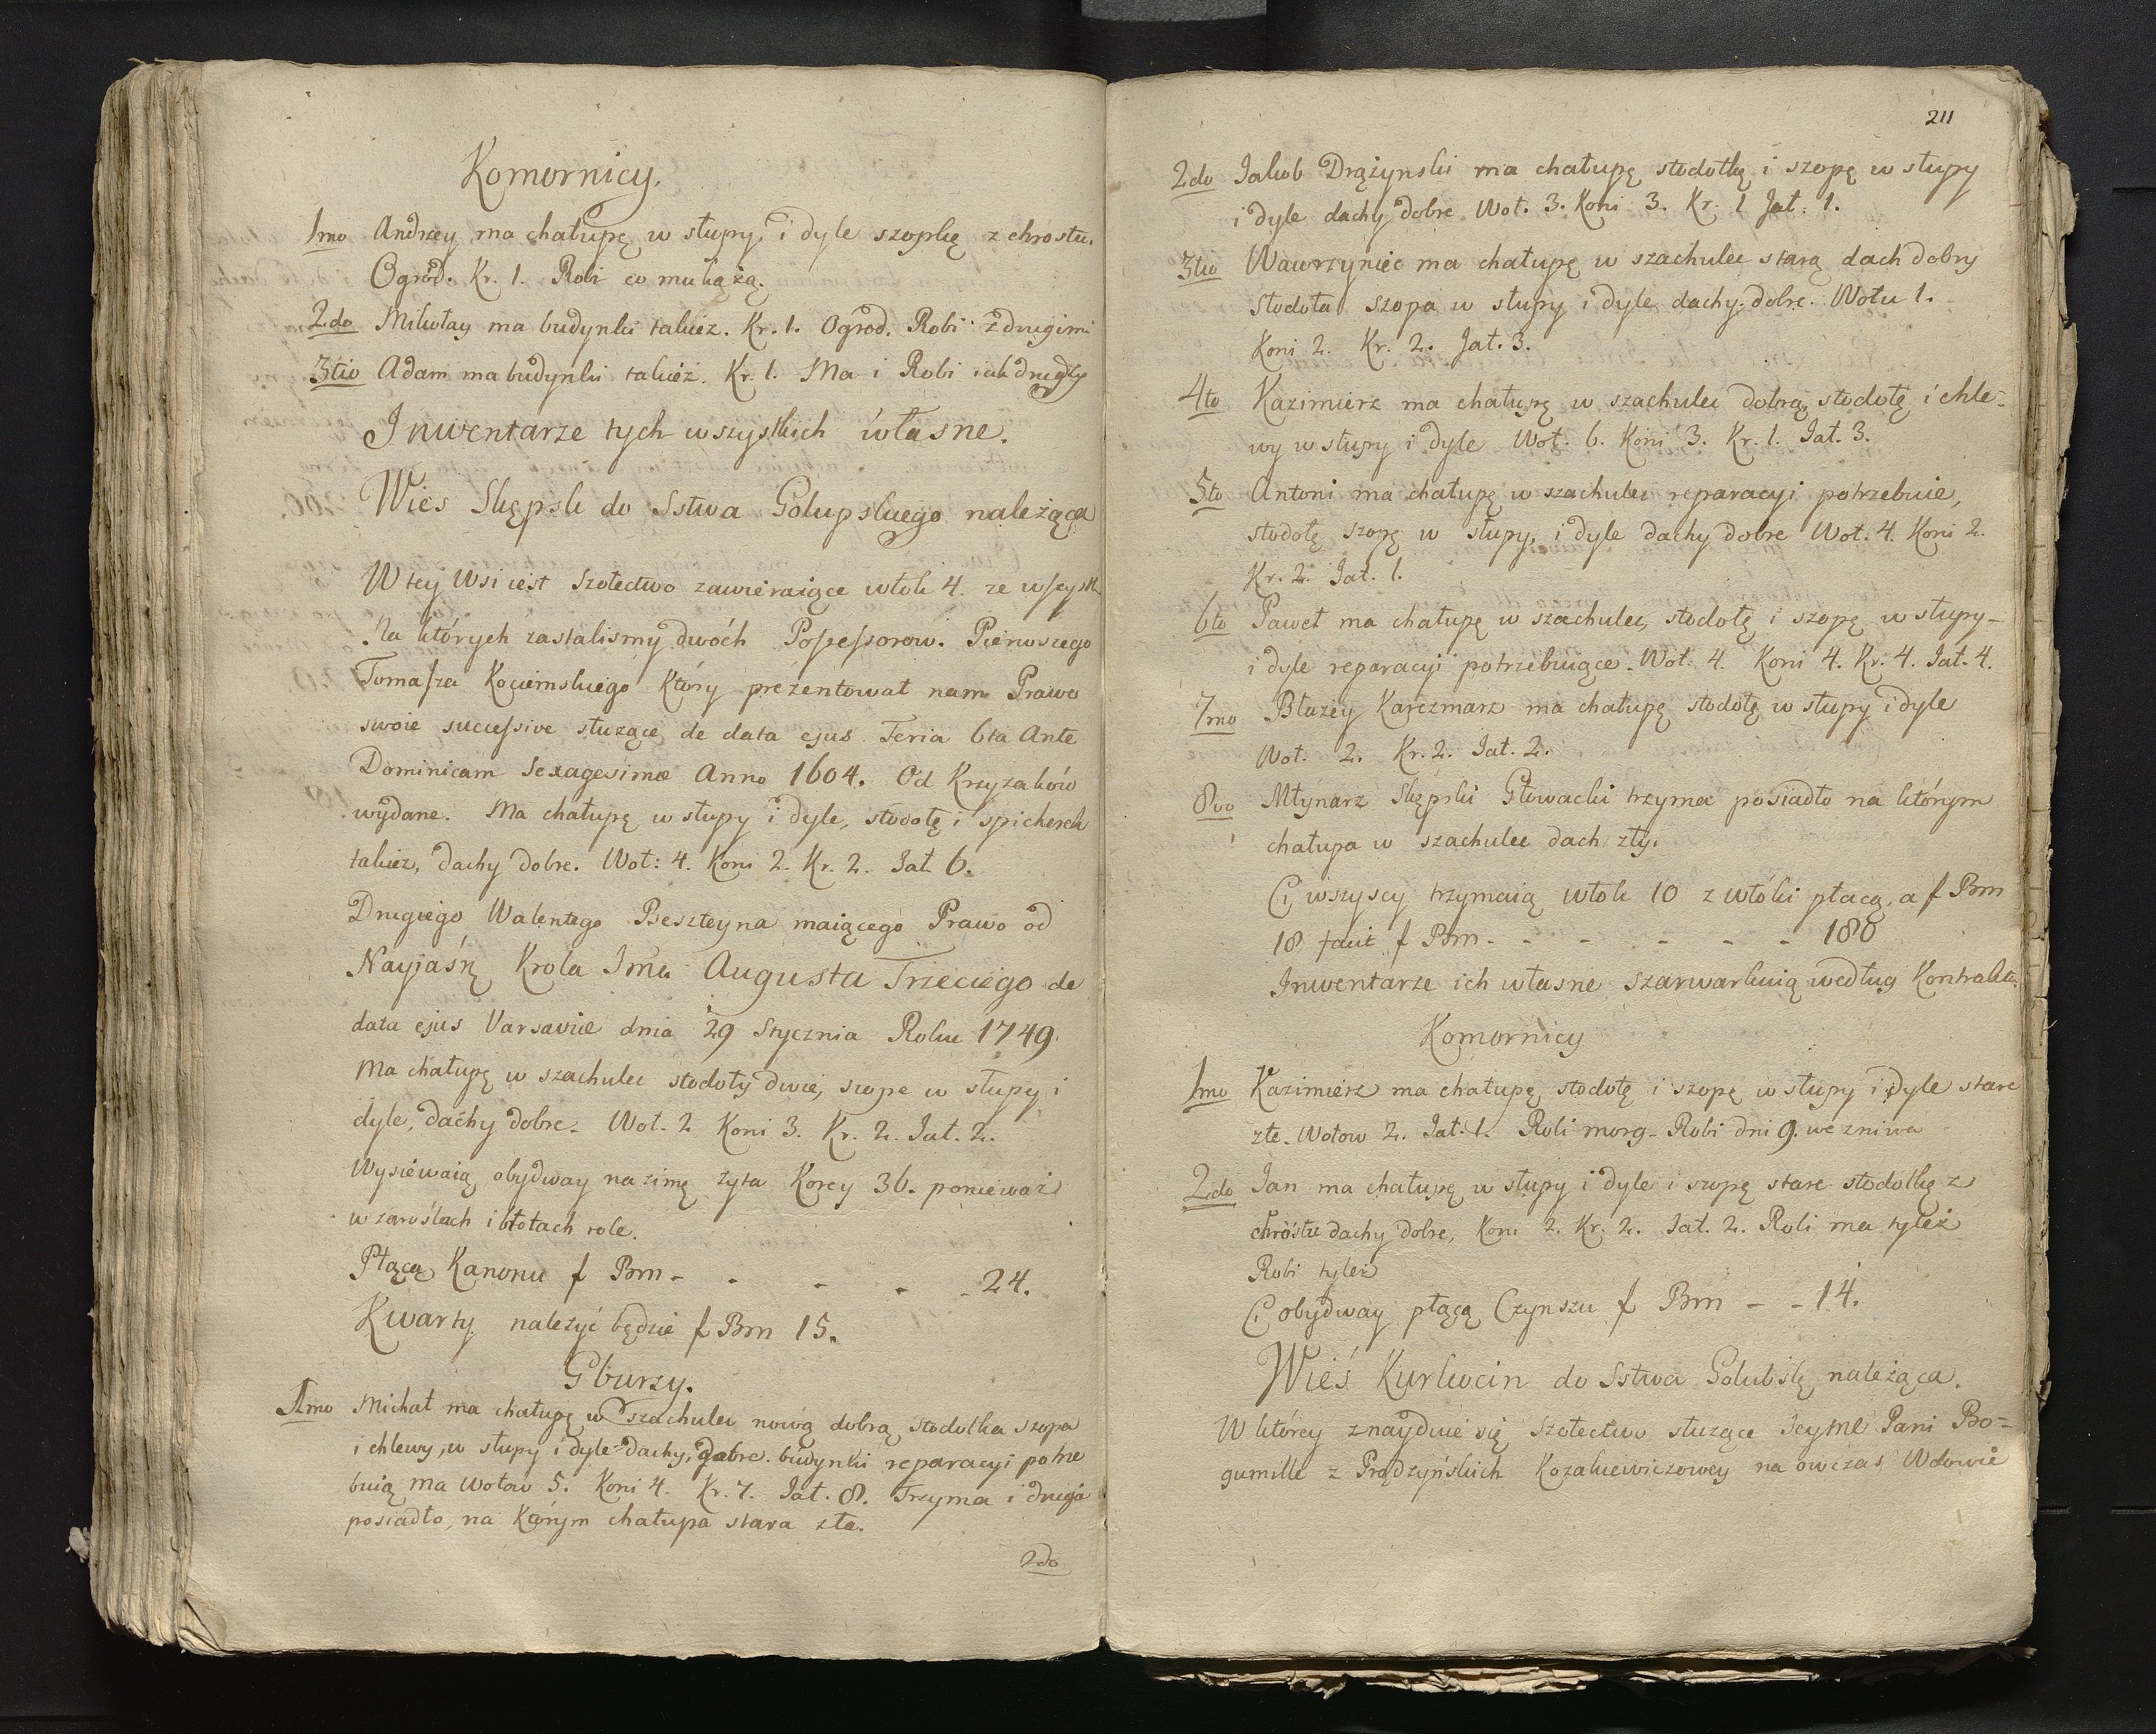 Komornicy.
1mo Andrzey ma chałupę w słupy i dyle szopkę z chrostu.
Ogród. Kr. 1. Robi co mu każą.
2do Mikołay ma budynki takież. Kr. 1. Ogrod. Robi z drugimi
3tio Adam ma budynki takież. Kr. 1. Ma i Robi iak drugi
Inwentarze tych wszystkich własne.
Wies Skępsk do Sstwa Golupskiego należąca
W tey Wsi iest Szołectwo zawieraiące włók 4. ze wszystk
Na których zastalismy dwóch Possessorow. Pierwszego
Tomasza Kociemskiego Który prezentował nam Prawo
swoie successive słuzące de data ejus Feria 6ta Ante
Dominicam Sexagesimæ Anno 1604. Od Krzyzaków
wydane. Ma chałupę w słupy i dyle, stodołę i spicherek
takiez, dachy dobre. Woł: 4. Koni 2. Kr. 2. Jał. 6.
Drugiego Walentego Beszteyna maiącego Prawo od
Nayjaśn Krola Jmci Augusta Trzeciego de
data ejus Varsaviæ dnia 29 Stycznia Roku 1749.
Ma chałupę w szachulec stodoły dwie, szope w słupy i
dyle, dachy dobre. Woł. 2 Koni 3. Kr. 2. Jał. 2.
Wysiewaią obydway na zimę zyta Korcy 36. ponieważ
w zaroślach i błotach role.
Płącą Kanonu f Prm - - - - - 24.
Kwarty należyć będzie f Prm 15.
Gburzy.
1mo Michał ma chałupę w szachulec nową dobrą stodolka szopa
i chlewy, w słupy i dyle dachy, dobre. budynki reparacyi potrze
buią ma Wołow 5. Koni 4. Kr. 7. Jał. 8. Trzyma i drugie
posiadło, na Którym chałupa stara zła.
2do
211
2do Jakob Drążynski ma chałupę stodołkę i szopę w słupy
i dyle dachy dobre Woł. 3. Koni 3. Kr. 1 Jał. 1.
3tio Wawrzyniec ma chałupę w szachulec starą dach dobry
Stodoła szopa w słupy i dyle dachy dobre. Wołu 1.
Koni 2. Kr. 2. Jał. 3.
4to Kazimierz ma chałupę w szachulec dobrą, stodołę i chle-
wy w słupy i dyle Woł. 6. Koni 3. Kr. 1. Jał. 3.
5to Antoni ma chałupę w szachulec reparacyi potrzebuie,
stodołę szopę w słupy, i dyle dachy dobre Woł. 4. Koni 2.
Kr. 2. Jał. 1.
6to Paweł ma chałupę w szachulec, stodołę i szopę w słupy
i dyle reparacyi potrzebuiące. Woł. 4. Koni 4. Kr. 4. Jał. 4.
7mo Błazey Karczmarz ma chałupę stodołę w słupy i dyle
Woł. 2. Kr. 2. Jał. 2.
8vo Młynarz Skępski Głowacki trzyma posiadło na którym
chałupa w szachulec dach zły.
Ci wszyscy trzymaią włok 10 z włóki płacą, a f Prm
18 facit f Prm - - - - - - 180
Inwentarze ich własne szarwarkuią według Kontraktu
Komornicy
1mo Kazimierz ma chałupę, stodołę i szopę w słupy i dyle stare
złe. Wołow 2. Jał. 1. Roli morg. Robi dni 9. we zniwa
2do Jan ma chałupę w słupy i dyle i szopę stare stodołkę z
chróstu dachy dobre, Koni 2. Kr. 2. Jał. 2. Roli ma tyleż
Robi tyleż
Ci obydway płącą Czynszu f Prm - - 14.
Wieś Kurkocin do Sstwa Golubsk należąca.
W którey znayduie się Szołectwo służące Jeyme Pani Bo-
gumille z Prądzyńskich Kozakiewiczowey na owczas Wdowie